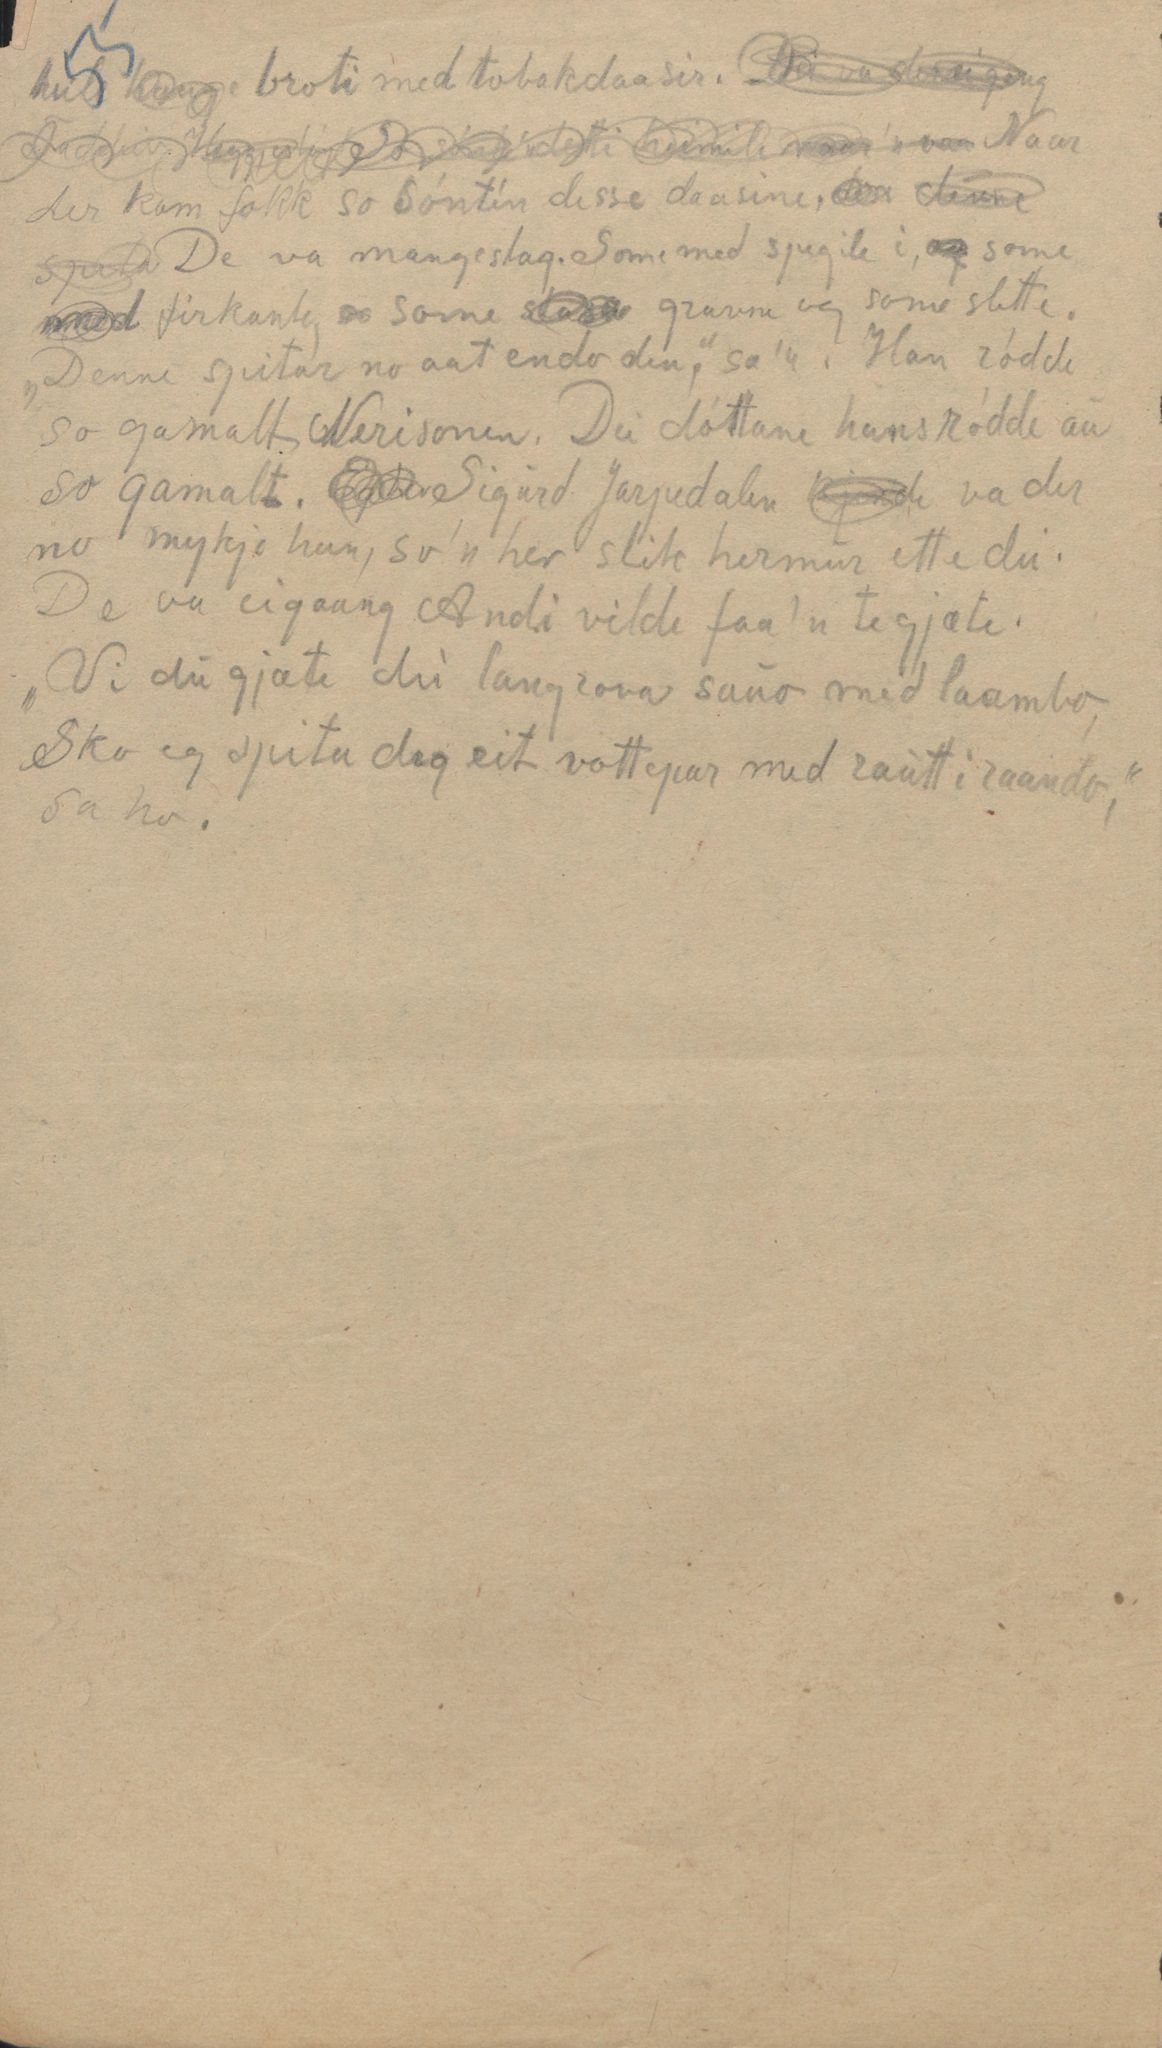 broti med tobakdaasir.
Naar
der kom fokk so sóntín desse daasine,
De va mangeslag. Some med spegile i, some
firkanta, some gravne og some slette.
„Denne spitar no aat endo den," sa'n. Hanródde
so gamalt, Nerisonen. Dei dóttane hans ródde aü
so gamalt. Sigürd Jarjudalen va der
no mykje hun, so'n her slik hermür ette dei.
De va eigaang Andi vilde faa'n te gjæte.
„Vi dü gjæte dei langrova saüo med laambo,
Sko eg spita deg eit vottepar med raütt i raando,"
sa ho.